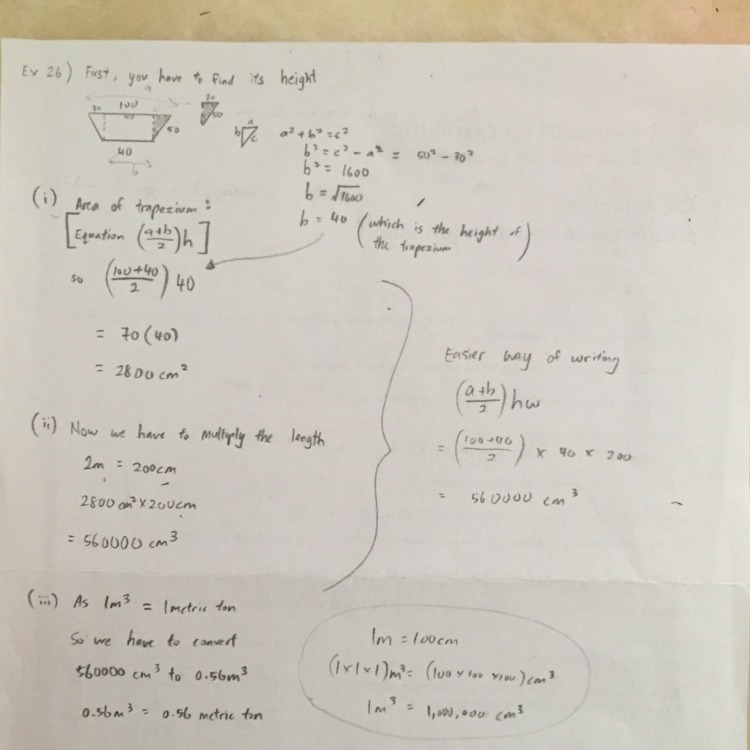 Ex 26) First, you have to find its height
a
100
30
40
50
40
b
30
50
a
b
c
a² + b² = c²
b² = c² - a² = 50² - 30²
b² = 1600
b = √1600
b = 40 (which is the height of the trapezium)
(i) Area of trapezium:
[Equation (a+b/2)h]
so (100+40/2) 40
= 70(40)
= 2800 cm²
(ii) Now we have to multiply the length
2m = 200cm
2800 cm² × 200cm
= 560000 cm³
Easier way of writing
(a+b/2) hw
= (100+40/2) × 40 × 200
= 560000 cm³
(iii) As 1m³ = 1 metric ton
So we have to convert
560000 cm³ to 0.56m³
0.56m³ = 0.56 metric ton
1m = 100cm
(1×1×1)m³ = (100 × 100 × 100) cm³
1m³ = 1,000,000 cm³